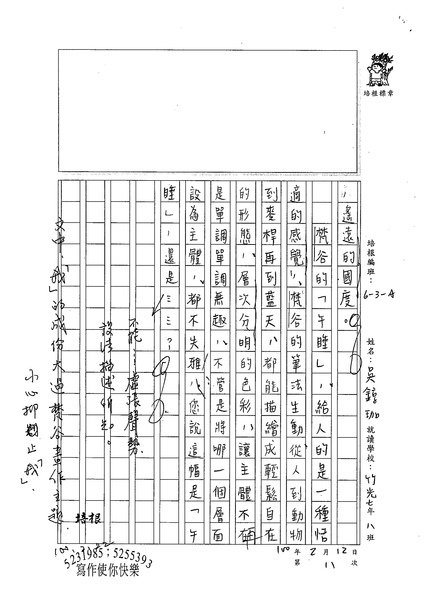 培根標章
培根編班：6-3-A
就讀學校：竹光七年八班
100年2月12日
第11次
遙遠的國度。
梵谷的「午睡」，給人的是一種恬
適的感覺，梵谷的筆法生動從人到動物
到麥桿再到藍天，都能描繪成輕鬆自在
的形態，層次分明的色彩，讓主體不在
是單調單調無趣，不管是將哪一個層面
設為主體，都不失雅，您說這幅是「午
睡」，還是……？
不能虛張聲勢
文中，「我」的成份大過梵谷畫作主題
培根
5231985；5255393
寫作使你快樂